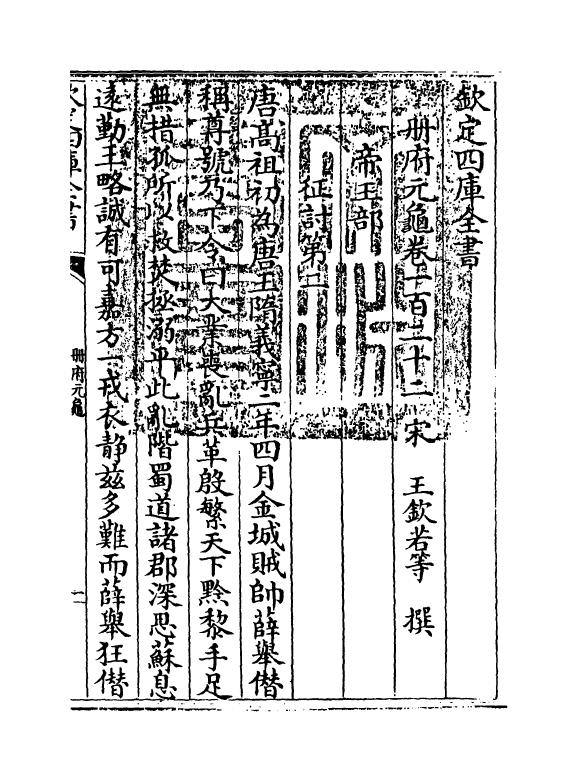 欽定四庫全書
册府元龜卷一百二十二 宋 王欽若等 撰
帝王部
征討第二
唐高祖初為唐王隋義寧二年四月金城賊帥薛舉僣
稱尊號乃下令曰大業喪亂兵革殷繁天下黔黎手足
無措孤所以救焚拯溺平此亂階蜀道諸郡深思蘇息
遠勤王略誠有可嘉方一戎衣静兹多難而薛舉狂僣
册府元龜